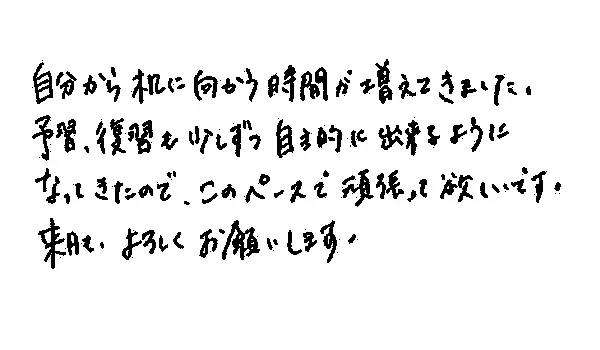 自分から机に向かう時間が増えてきました。
予習、復習も少しずつ自主的に出来るように
なってきたので、このペースで頑張って欲しいです。
来月も、よろしくお願いします。